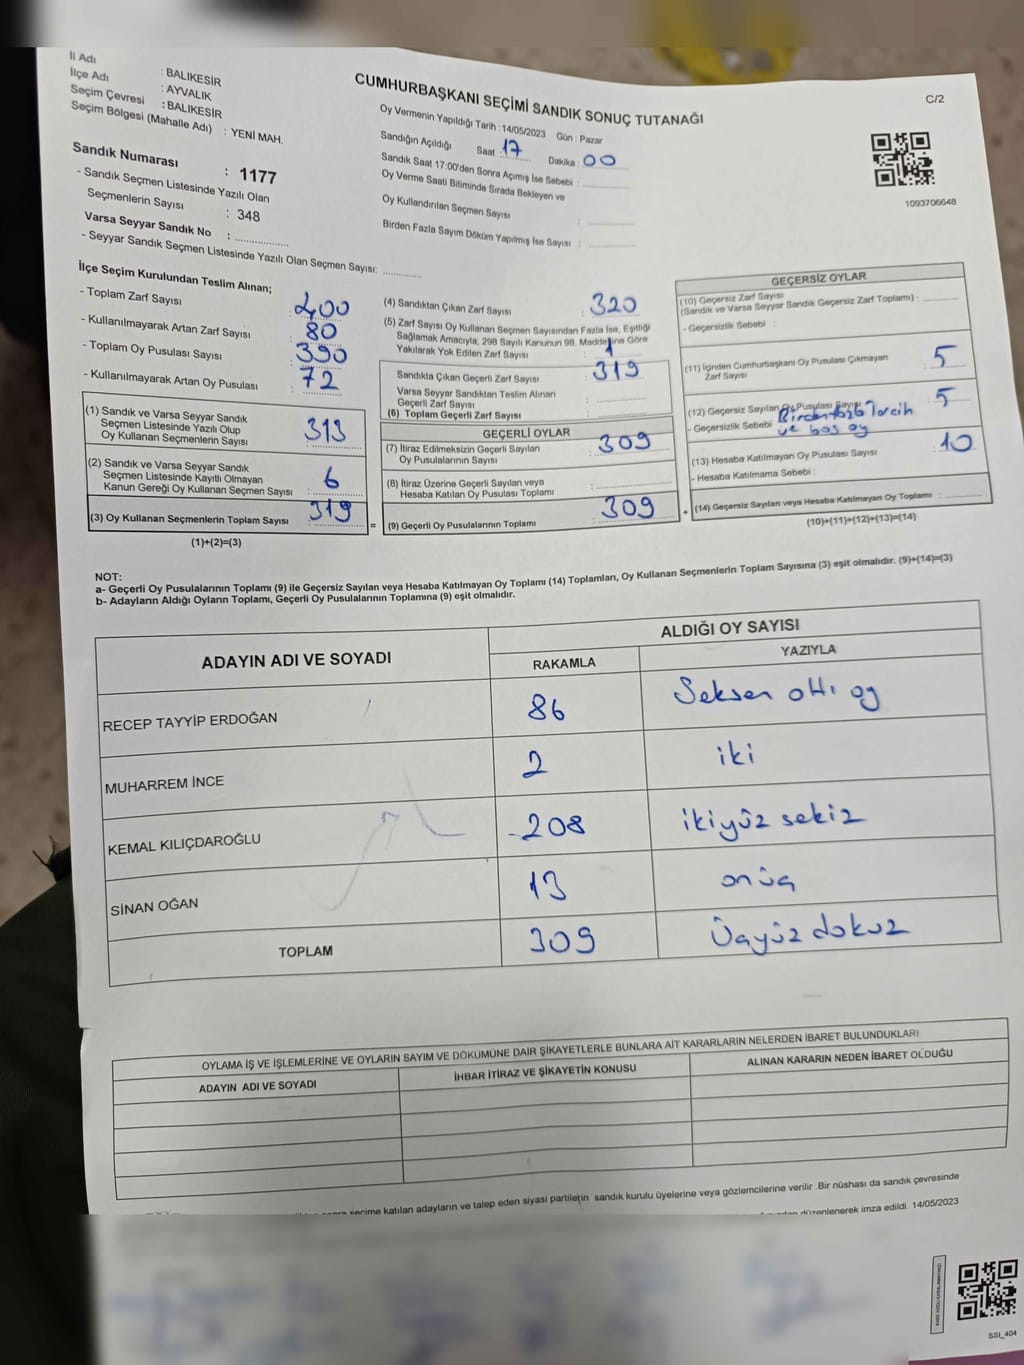 İl Adı : BALIKESİR
İlçe Adı : AYVALIK
Seçim Çevresi : BALIKESİR
Seçim Bölgesi (Mahalle Adı) : YENİ MAH.
Sandık Numarası : 1177
- Sandık Seçmen Listesinde Yazılı Olan
Seçmenlerin Sayısı : 348
Varsa Seyyar Sandık No :
- Seyyar Sandık Seçmen Listesinde Yazılı Olan Seçmen Sayısı:
CUMHURBAŞKANI SEÇİMİ SANDIK SONUÇ TUTANAĞI
Oy Vermenin Yapıldığı Tarih : 14/05/2023 Gün : Pazar
Sandığın Açıldığı Saat : 17 Dakika : 00
Sandık Saat 17:00'den Sonra Açılmış İse Sebebi :
Oy Verme Saati Bitiminde Sırada Bekleyen ve
Oy Kullandırılan Seçmen Sayısı :
Birden Fazla Sayım Döküm Yapılmış İse Sayısı :
C/2
1093706648
İlçe Seçim Kurulundan Teslim Alınan;
- Toplam Zarf Sayısı : 400
- Kullanılmayarak Artan Zarf Sayısı : 80
- Toplam Oy Pusulası Sayısı : 390
- Kullanılmayarak Artan Oy Pusulası : 72
(1) Sandık ve Varsa Seyyar Sandık
Seçmen Listesinde Yazılı Olup
Oy Kullanan Seçmenlerin Sayısı : 313
(2) Sandık ve Varsa Seyyar Sandık
Seçmen Listesinde Kayıtlı Olmayan
Kanun Gereği Oy Kullanan Seçmen Sayısı : 6
(3) Oy Kullanan Seçmenlerin Toplam Sayısı : 319
(1)+(2)=(3)
=
(4) Sandıktan Çıkan Zarf Sayısı : 320
(5) Zarf Sayısı Oy Kullanan Seçmen Sayısından Fazla İse, Eşitliği
Sağlamak Amacıyla, 298 Sayılı Kanunun 98. Maddesine Göre
Yakılarak Yok Edilen Zarf Sayısı : 1
Sandıkta Çıkan Geçerli Zarf Sayısı : 319
Varsa Seyyar Sandıktan Teslim Alınan
Geçerli Zarf Sayısı :
(6) Toplam Geçerli Zarf Sayısı :
GEÇERLİ OYLAR
(7) İtiraz Edilmeksizin Geçerli Sayılan
Oy Pusulalarının Sayısı : 309
(8) İtiraz Üzerine Geçerli Sayılan veya
Hesaba Katılan Oy Pusulası Toplamı :
(9) Geçerli Oy Pusulalarının Toplamı : 309
+
GEÇERSİZ OYLAR
(10) Geçersiz Zarf Sayısı
(Sandık ve Varsa Seyyar Sandık Geçersiz Zarf Toplamı) :
- Geçersizlik Sebebi :
(11) İçinden Cumhurbaşkanı Oy Pusulası Çıkmayan
Zarf Sayısı : 5
(12) Geçersiz Sayılan Oy Pusulası Sayısı : 5
- Geçersizlik Sebebi Birden fazla Tercih
ve boş oy
(13) Hesaba Katılmayan Oy Pusulası Sayısı : 10
- Hesaba Katılmama Sebebi :
(14) Geçersiz Sayılan veya Hesaba Katılmayan Oy Toplamı :
(10)+(11)+(12)+(13)=(14)
NOT:
a- Geçerli Oy Pusulalarının Toplamı (9) ile Geçersiz Sayılan veya Hesaba Katılmayan Oy Toplamı (14) Toplamları, Oy Kullanan Seçmenlerin Toplam Sayısına (3) eşit olmalıdır. (9)+(14)=(3)
b- Adayların Aldığı Oyların Toplamı, Geçerli Oy Pusulalarının Toplamına (9) eşit olmalıdır.
ADAYIN ADI VE SOYADI ALDIĞI OY SAYISI
RAKAMLA YAZIYLA
RECEP TAYYİP ERDOĞAN 86 Seksen altı oy
MUHARREM İNCE 2 iki
KEMAL KILIÇDAROĞLU 208 ikiyüz sekiz
SİNAN OĞAN 13 onüç
TOPLAM 309 Üçyüz dokuz
OYLAMA İŞ VE İŞLEMLERİNE VE OYLARIN SAYIM VE DÖKÜMÜNE DAİR ŞİKAYETLERLE BUNLARA AİT KARARLARIN NELERDEN İBARET BULUNDUKLARI
ADAYIN ADI VE SOYADI İHBAR İTİRAZ VE ŞİKAYETİN KONUSU ALINAN KARARIN NEDEN İBARET OLDUĞU
seçime katılan adayların ve talep eden siyasi partilerin sandık kurulu üyelerine veya gözlemcilerine verilir. Bir nüshası da sandık çevresinde
düzenlenerek imza edildi. 14/05/2023
SSI_404